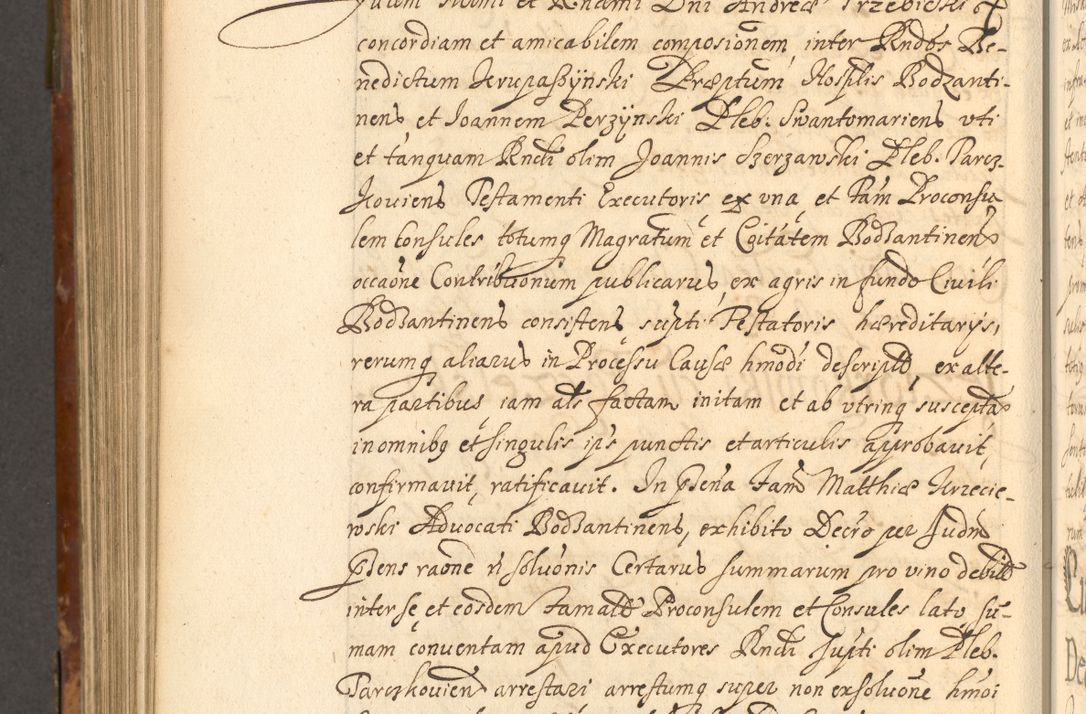 concordiam et amicabilem composionem inter Rndos Be-
nedictum Krupaszÿnski Præptum Hosplis Bodzanti-
nens et Joannem Perzÿnski Pleb. Swantomariens vti
et tanquam Rndi olim Joannis Szerzawski Pleb. Parcz-
koviens Testamenti Executoris ex vna et Fam Proconsu
lem Consules totumq Magratum et Coitatem Bodzantinens
occaone Contributionum publicarus ex agris in fundo Civili
Bodzantinens consistens supti Testatoris hæreditarÿs,
rerumq aliarus in Processu Causæ hmodi descript ex alte-
ra partibus iam als factam initam et ab vtrinq suscepta
in omnibq et singulis ips punctis et articulis approbavit,
confirmavit, ratificavit. In pñena Fam Matthiæ Krzecie-
wski Advocati Bodzantinens, exhibito Decro per Judm
pñens raone ñ soluonis Certarus summarum pro vino debit
inter se, et eosdem Famatt Proconsulem et Consules lato su-
mam conventam apud Executores Rndi supti olim Pleb.
Parczkoviens arrestari arrestumq super non exsoluone hmoi